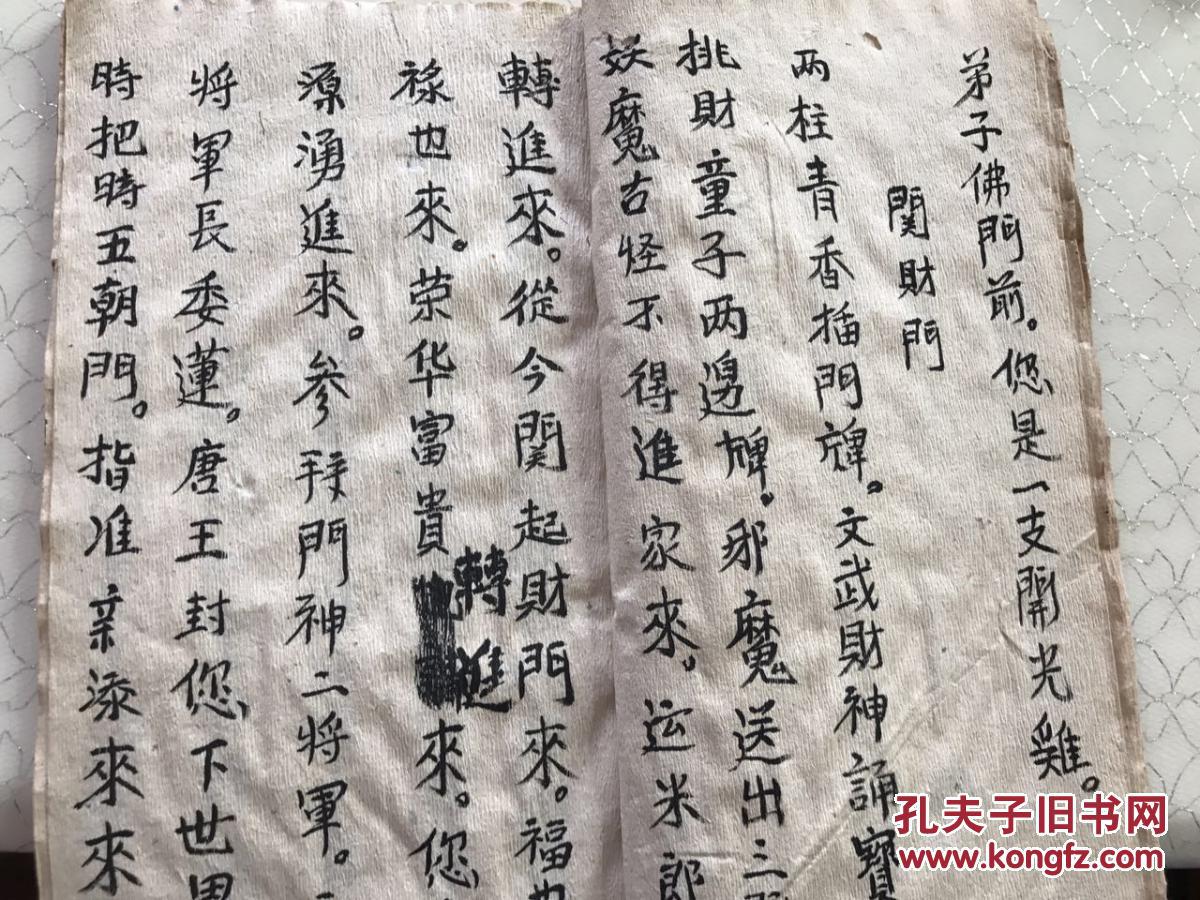 弟子佛門前。您是一支開光雞。
関財門
两柱青香插門牌。文武財神誦寶
挑財童子两邊牌。邪魔送出三
妖魔古怪不得進家來。运米郎
轉進來。從今関起財門來。福也
禄也來。荣华富貴轉進來。您
源湧進來。參拜門神二將軍。
將軍長委蓮。唐王封您下世界
時把時五朝門。指准亲添來來
孔夫子旧书网
www.kongfz.com